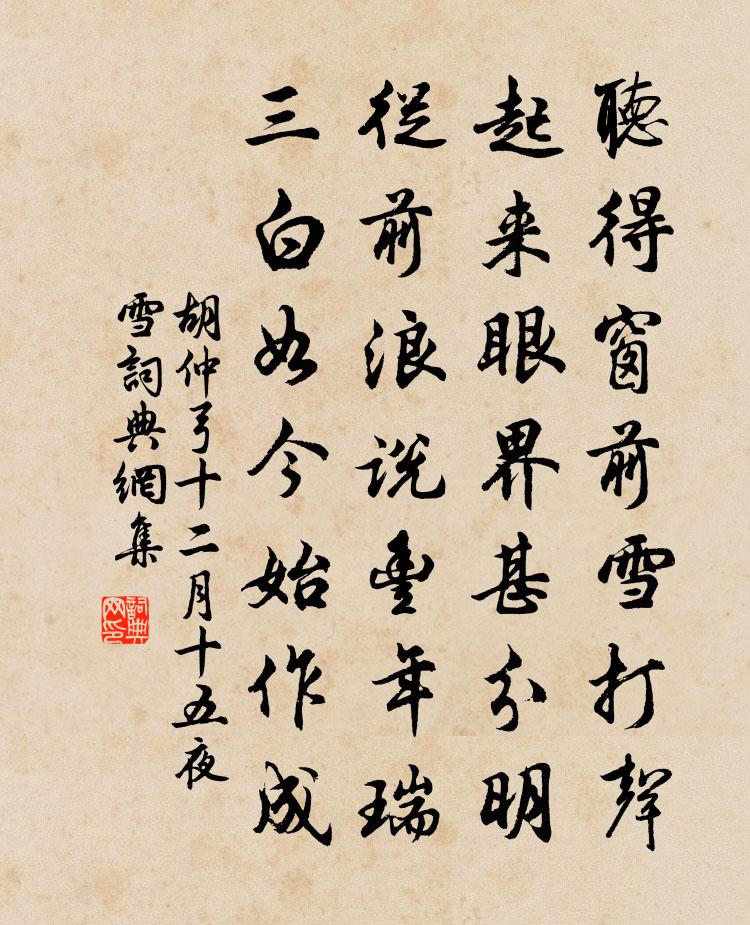 聽得窗前雪打聲
起来眼界甚分明
從前浪說豐年瑞
三白如今始作成
胡仲弓十二月十五夜
雪詞典網集
詞典网印